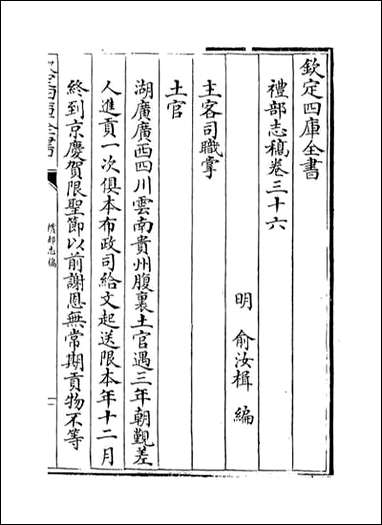 欽定四庫全書
禮部志稿卷三十六
明 俞汝楫 編
主客司職掌
土官
湖廣廣西四川雲南貴州腹裏土官遇三年朝覲差
人進貢一次俱本布政司給文起送限本年十二月
終到京慶賀限聖節以前謝恩無常期貢物不等
欽定四庫全書
禮部志稿